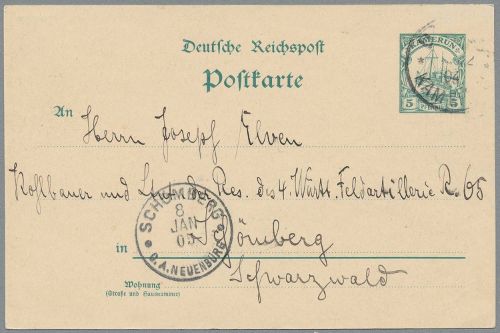 Deutsche Reichspost
Postkarte
KAMERUN
5 5
04
KAM
An
Herrn Josef Elven
und Lt. der Res. des 4. Württ. Feldartillerie R. 65
SCHÖMBERG
8
JAN
05
O.A. NEUENBÜRG
in Schömberg
Schwarzwald
Wohnung
(Straße und Hausnummer)